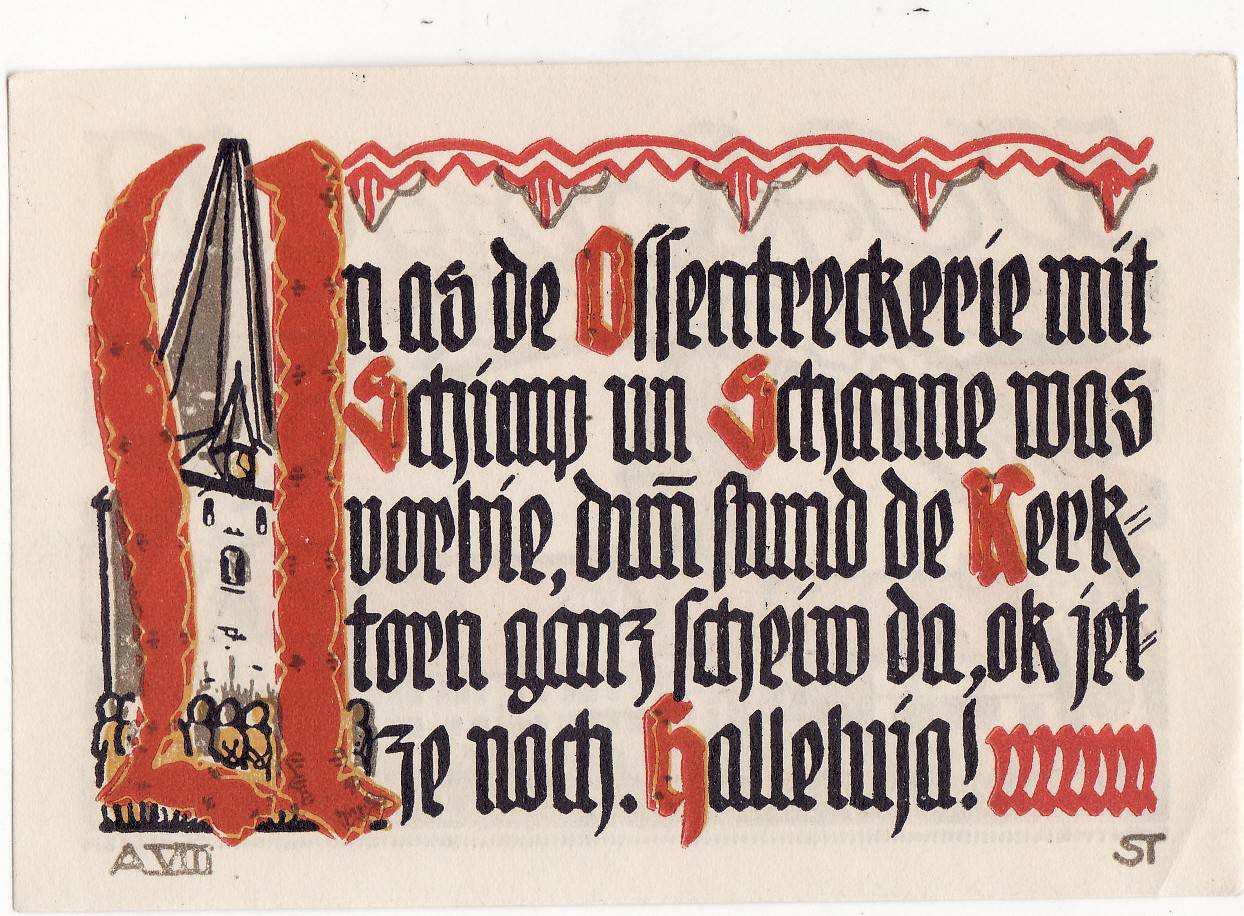 Un as de Ossentreckerie mit
Schimp un Schanne was
vorbie, dun̄ stund de Kerk=
torn ganz scheiw da, ok jet=
ze noch. Halleluja!
A VIII ST